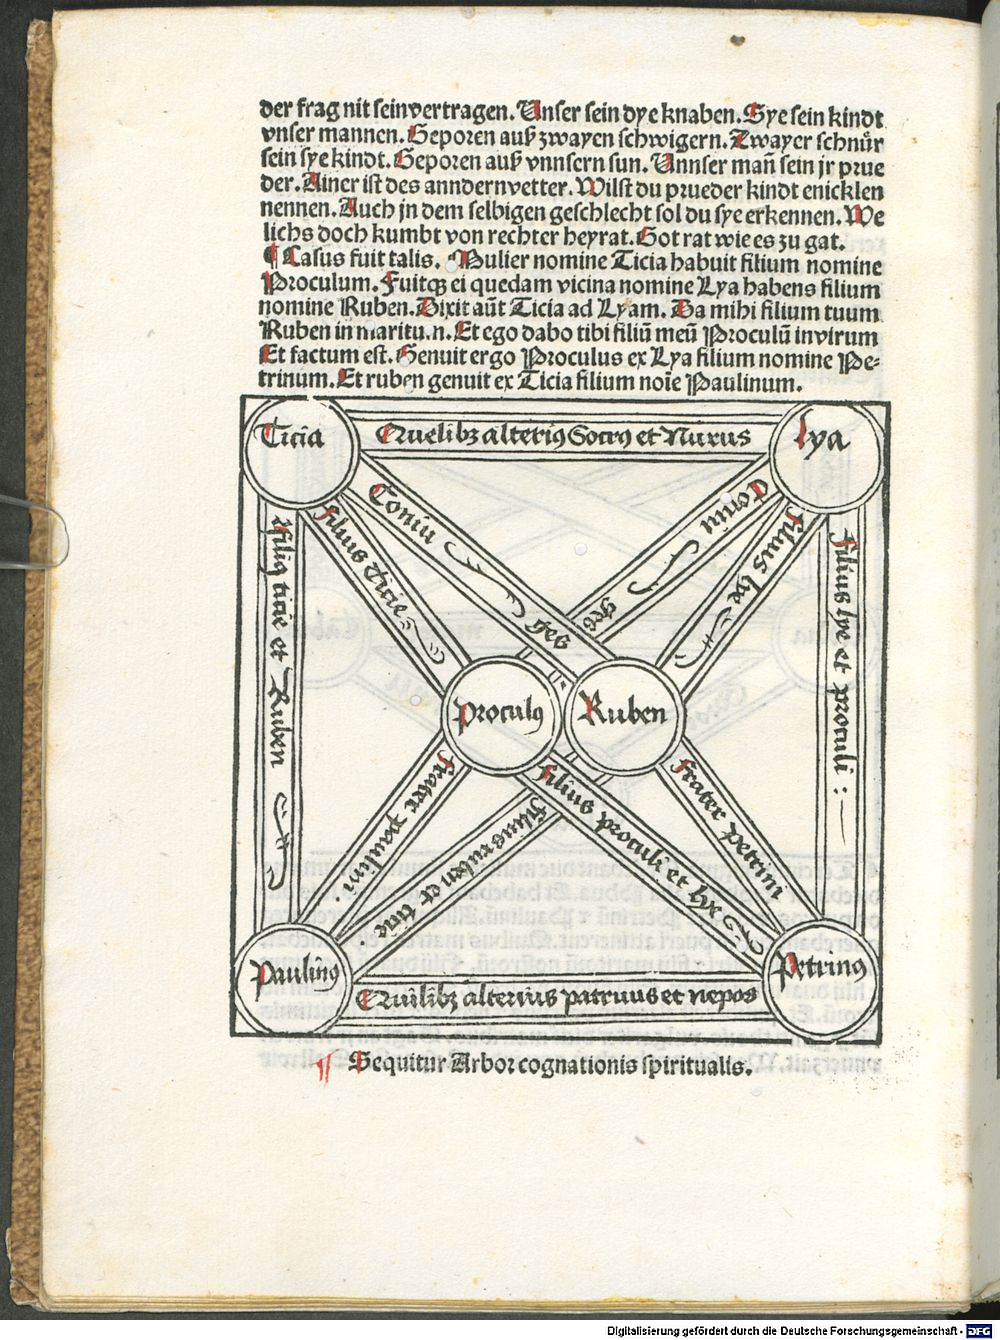 der frag nit sein vertragen. Unser sein dye knaben. Sye sein kindt
vnser mannen. Geporen auß zwayen schwigern. Zwayer schnůr
sein sye kindt. Geporen auß vnnsern sun. Unnser mañ sein jr prue
der. Ainer ist des anndern vetter. Wilst du prueder kindt enicklen
nennen. Auch jn dem selbigen geschlecht sol du sye erkennen. We
lichs doch kumbt von rechter heyrat. Got rat wie es zu gat.
¶ Casus fuit talis. Mulier nomine Ticia habuit filium nomine
Proculum. Fuitqꝫ ei quedam vicina nomine Lya habens filium
nomine Ruben. Dixit aūt Ticia ad Lyam. Da mihi filium tuum
Ruben in maritum. Et ego dabo tibi filiū meū Proculū in virum
Et factum est. Genuit ergo Proculus ex Lya filium nomine Pe-
trinum. Et ruben genuit ex Ticia filium noīe Paulinum.
Ticia
Quelibꝫ alteriꝰ Socrꝰ et Nurus
Lya
Coniu ges
Coniu ges
filius Ticie
filius lye
filiꝰ ticie et Ruben
filius lye et proculi :
Proculꝰ
Ruben
frater paulini.
filius ruben et ticie
filius proculi et lye
frater Petrini
Paulinꝰ
Quilibꝫ alterius patruus et nepos
Petrinꝰ
¶ Sequitur Arbor cognationis spiritualis.
Digitalisierung gefördert durch die Deutsche Forschungsgemeinschaft - DFG